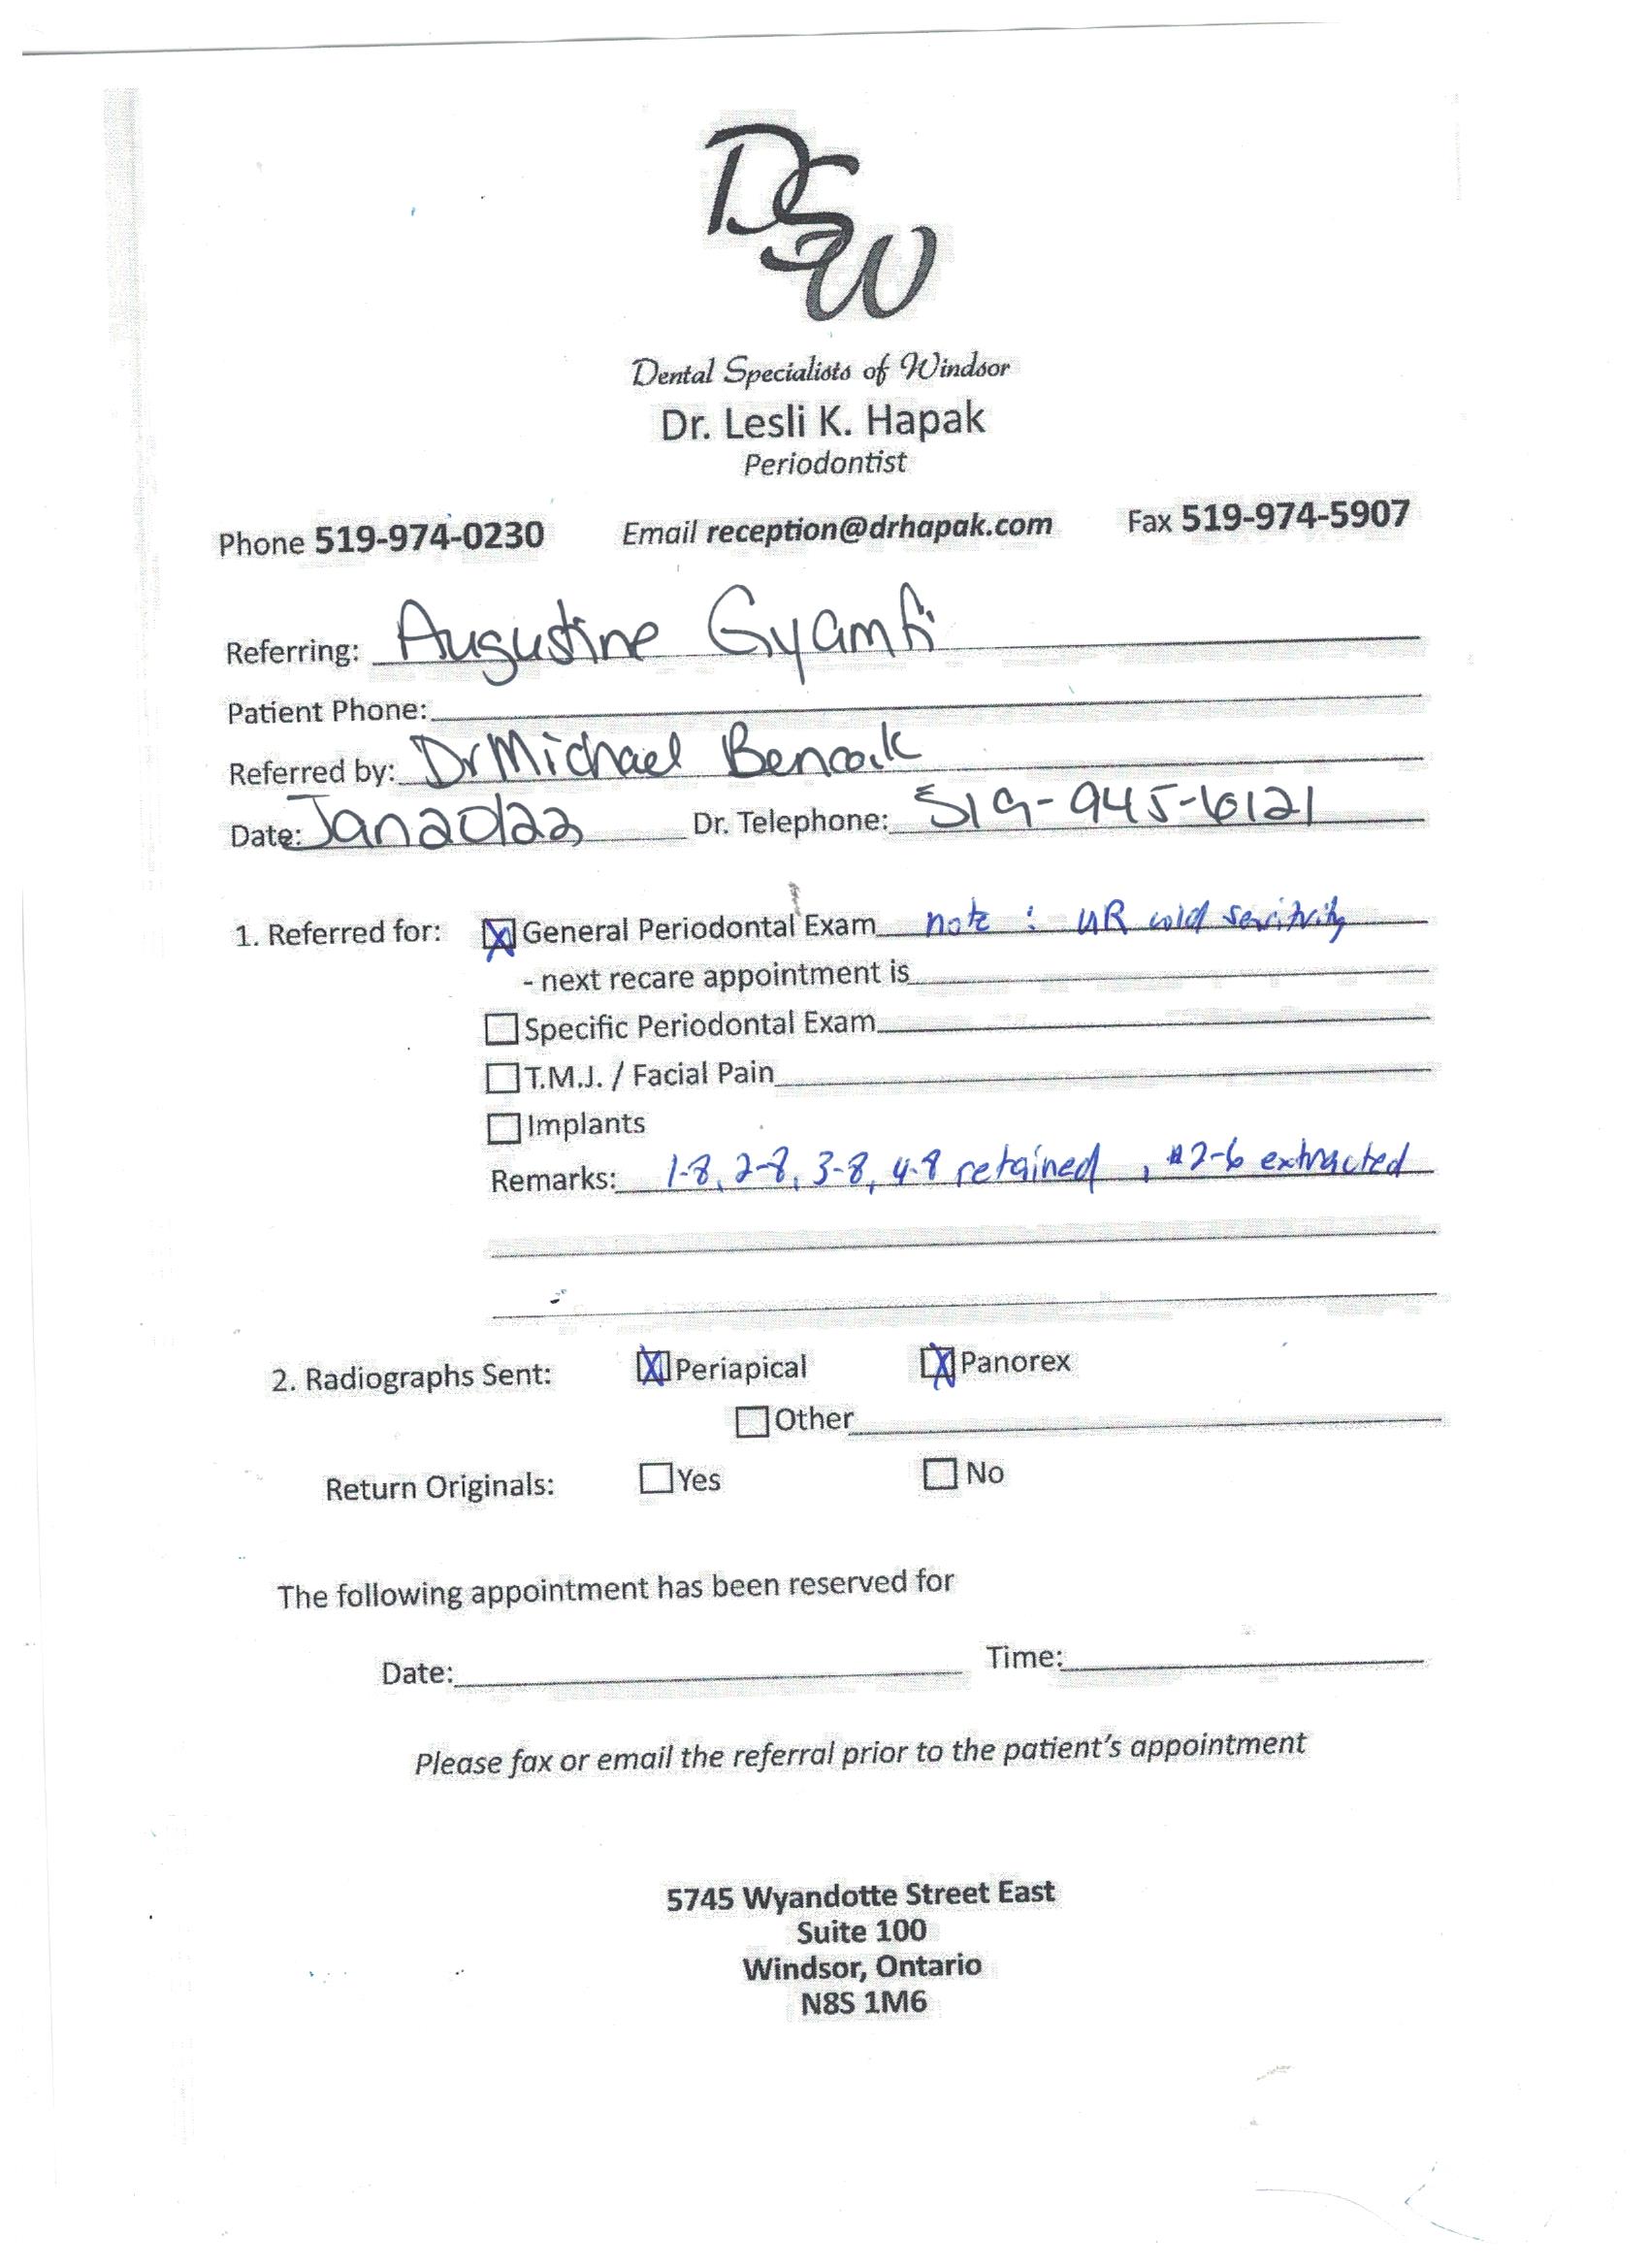 DSW
Dental Specialists of Windsor
Dr. Lesli K. Hapak
Periodontist
Phone 519-974-0230 Email reception@drhapak.com Fax 519-974-5907
Referring: Augustine Gyamfi
Patient Phone:
Referred by: Dr Michael
Date: Jan 20/22 Dr. Telephone: 519-945-6121
1. Referred for: General Periodontal Exam note : UR cold sensitivity
- next recare appointment is
Specific Periodontal Exam
T.M.J. / Facial Pain
Implants
Remarks: 1-8, 2-8, 3-8, 4-8 retained , #2-6 extracted
2. Radiographs Sent: Periapical Panorex
Other
Return Originals: Yes No
The following appointment has been reserved for
Date: Time:
Please fax or email the referral prior to the patient's appointment
5745 Wyandotte Street East
Suite 100
Windsor, Ontario
N8S 1M6